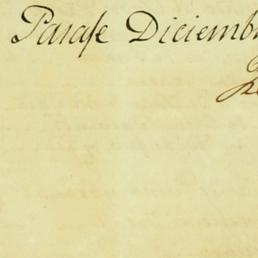 Parase Diciemb